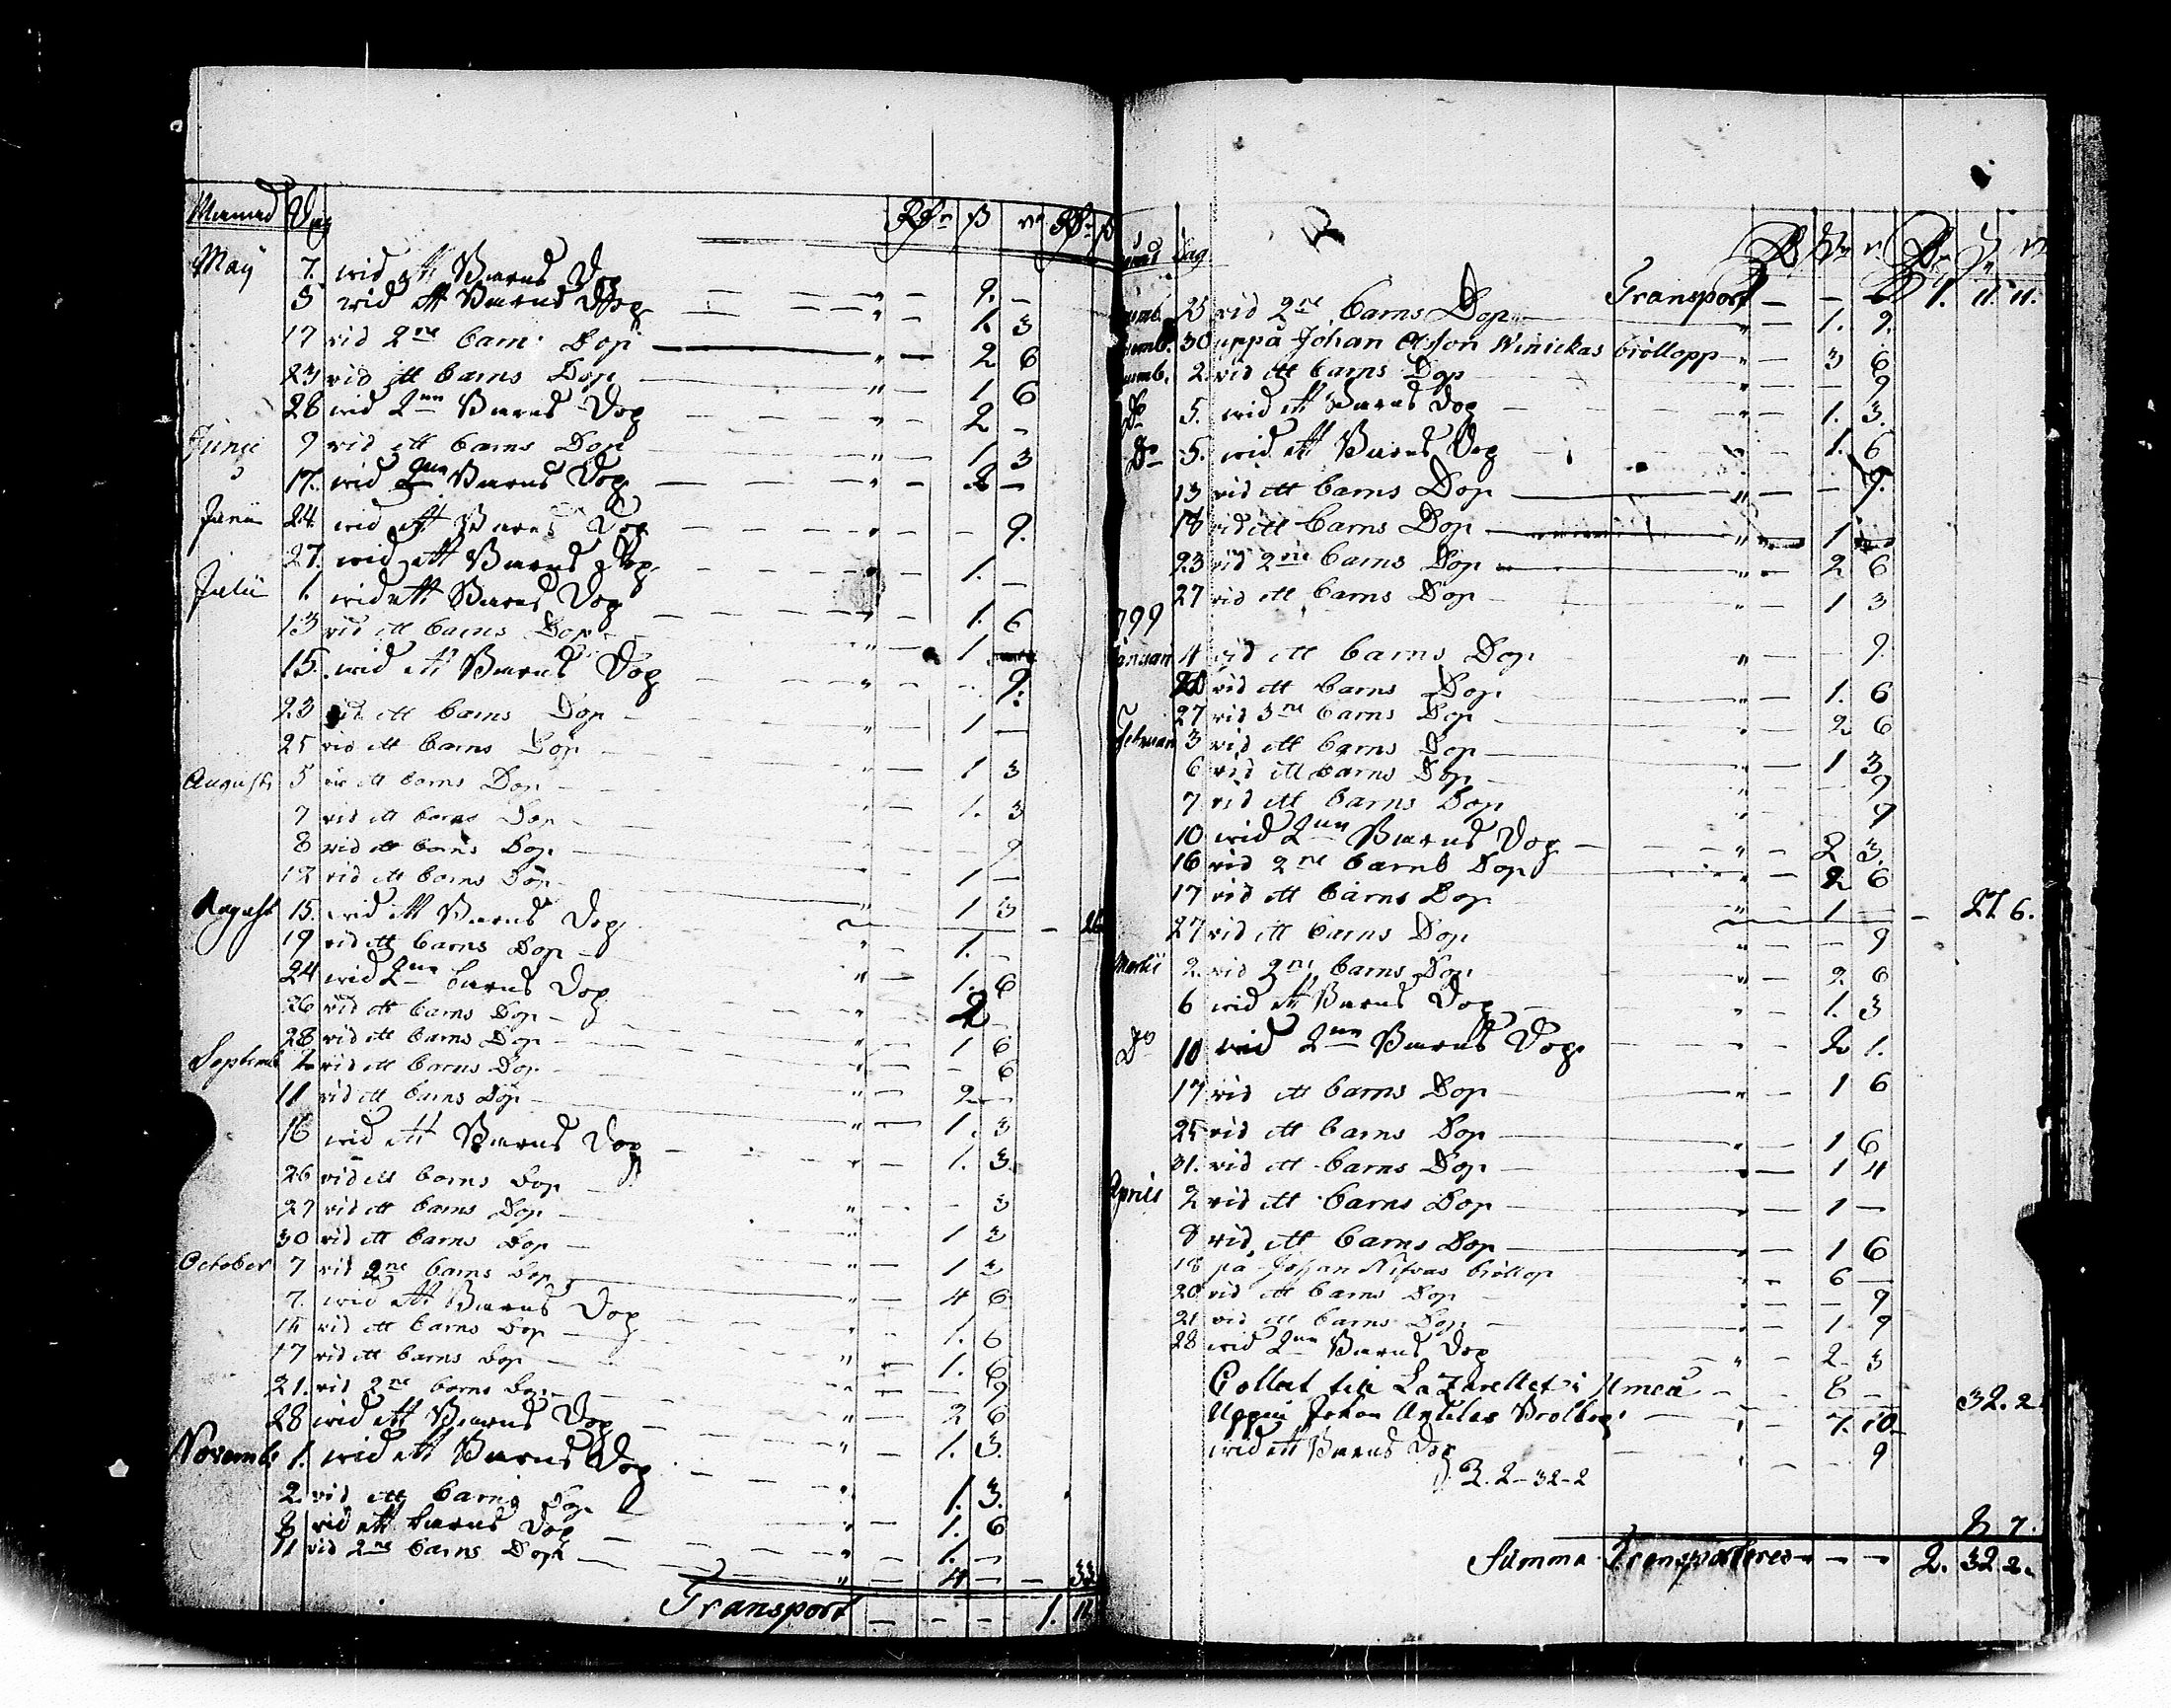 Månad Dag Rdr ß rs Rdr ß
Maij 7. wid ett Barns Dop 9. –
8 wid ett Barns Dop " – 1. 3
17 vid 2ne barns Dop " – 2 6
23 vid ett barns Dop " – 1 6
28 wid 2ne Barns Dop " – 2 –
Junii 9 vid ett barns Dop " – 1 3
17. wid 2ne Barns Dop " – 2 –
Junii 24 wid ett Barns Dop " – – 9.
27. wid ett Barns Dop " – 1. –
Julii 1 wid ett Barns Dop " – 1. 6
13 vid ett barns Dop " – 1
15. wid ett Barns Dop " – – 9.
23 vid ett barns Dop " – 1 –
25 vid ett barns Dop " – 1 3
Augusti 5 vid ett barns Dop " – 1. 3
7 vid ett barns Dop 9
8 vid ett barns Dop 1 –
12 vid ett barns Dop " 1 3
August 15. wid ett Barns Dop – 1. –
19 vid ett barns Dop " – 1. 6
24 wid 2ne barns Dop " – 2 –
26 vid ett barns Dop " – 1 6
28 vid ett barns Dop " – – 6
Septemb 2 vid ett barns Dop " – 2 –
11 vid ett barns Dop " – 1. 3
16 wid ett Barns Dop " – 1. 3.
26 vid ett barns Dop " – – 3
27 vid ett barns Dop 1 3
30 vid ett barns Dop 1 3
October 7 vid 2ne barns Dop " – 4 6
7. wid ett Barns Dop " – 1. 6
14 vid ett barns Dop " – 1. 6
17 vid ett barns Dop " – – 9
21. vid 2ne barns Dop " – 2 6
28 wid ett Barns Dop " – 1. 3.
Novemb 1. wid ett Barns Dop " 1. 3.
2. vid ett barns Dop " – 1. 6
8 vid ett barns Dop " – 1. –
11 vid 2ne barns Dop " – 4 – – 33
Transport – – – – 1. 11
Dag
Transport – – 1. 11. 11.
25 vid 2ne barns Dop " – 1. 9.
30 uppå Johan Olsson Winickas bröllopp " – 3 6
2. vid ett barns Dop " – – 9
Do 5. wid ett Barns Dop " – 1. 3.
Do 5. wid ett Barns Dop – 1. 6
13 vid ett barns Dop " – – 9.
18 vid ett barns Dop " 1
23 vid 2ne barns Dop " – 2 6
27 vid ett barns Dop " – 1 3
799
Januari 4 vid ett barns Dop " – – 9
20 vid ett barns Dop " – 1. 6
27 vid 3ne barns Dop " – 2 6
Februari 3 vid ett barns Dop " – 1 3
6 vid ett barns Dop " – – 9
7 vid ett barns Dop " – – 9
10 wid 2ne Barns Dop " – 2 3.
16 vid 2ne barns Dop " – 2 6
17 vid ett barns Dop " – 1 – – 27. 6.
27 vid ett barns Dop " – – 9
Martii 2. vid 2ne barns Dop " – 2 6
6 wid ett Barns Dop " – 1. 3
Do 10 wid 2ne Barns Dop " – 2 1.
17 vid ett barns Dop " – 1 6
25 vid ett barns Dop " 1 6
31. vid ett barns Dop " – 1 4
Aprilis 2 vid ett barns Dop " – 1 –
8 vid ett barns Dop " – 1 6
18 på Johan Rifvas bröllop " – 6 –
20 vid ett barns Dop " – – 9
21 vid ett barns Dop " – 1. 9
28 wid 2ne Barns Dop " – 2 3
Collect till Lazarettet i Umeå – – 8 – 32. 2.
Uppå Johan Anttilas Brollop " – 7. 10.
wid ett Barns Dop " – – 9
R. 2 – 32 – 2
8 7.
Summa Transporteres – – – 2. 32 2.